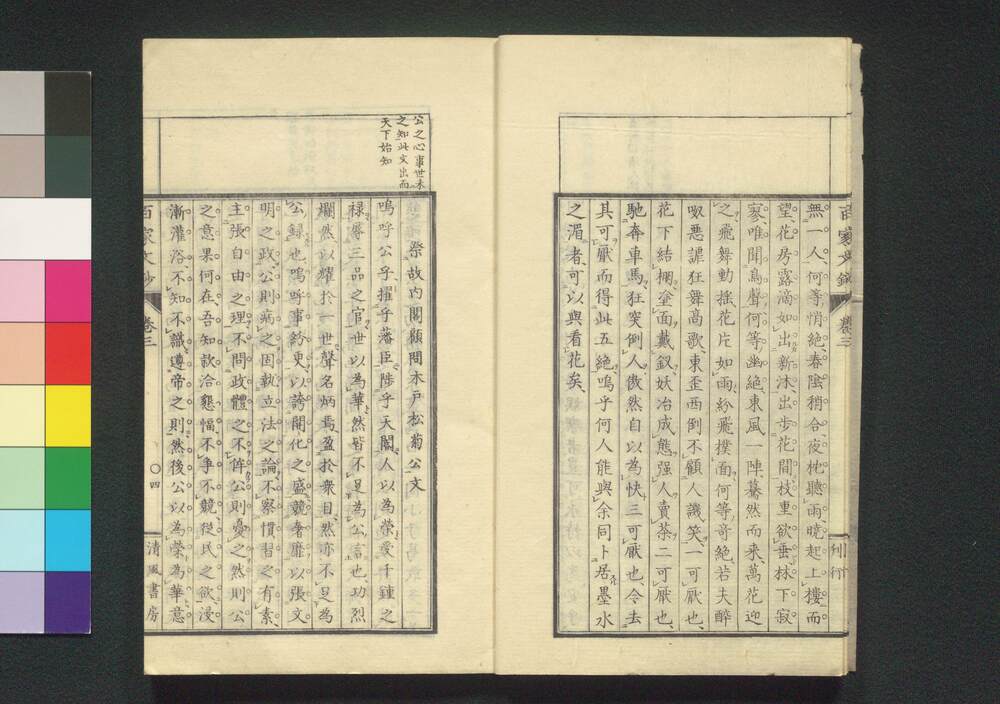 百家文鈔
卷三
刊行
無一人何等悄絶春陰稍合夜枕聽雨曉起上樓而
望花房露滴如出新沐出步花間枝重欲垂抹下寂
寥唯聞鳥聲何等幽絶東風一陣驀然而來萬花迎
之飛舞動搖花片如雨紛飛撲面何等奇絶若夫醉
呶惡謔狂舞高歌東歪西倒不顧人譏笑一可厭也
花下結棚塗面戴釵妖冶成態强人賣茶二可厭也
馳奔車馬狂突倒人傲然自以為快三可厭也令去
其可厭而得此五絶嗚乎何人能與余同卜居墨水
之湄者可以與看花矣
公之心事世未
之知此文出而
天下始知
祭故内閣顧問木戸松菊公文
嗚呼公乎擢乎藩臣陟乎天閣人以為榮愛千鍾之
祿辱三品之官世以為華然皆不足為公言也功烈
爛然以耀於一世聲名炳焉盈於衆目然亦不足為
公録也嗚呼事紛更以誇開化之盛競奢靡以張文
明之政公則病之固執立法之論不察慣習之有素
主張自由之理不問政體之不侔公則憂之然則公
之意果何在吾知欵洽懇愊不爭不競從民之欲浸
漸灌浴不知不識遵帝之則然後公以為榮為華意
百家文鈔
卷三
〇四
清風書房